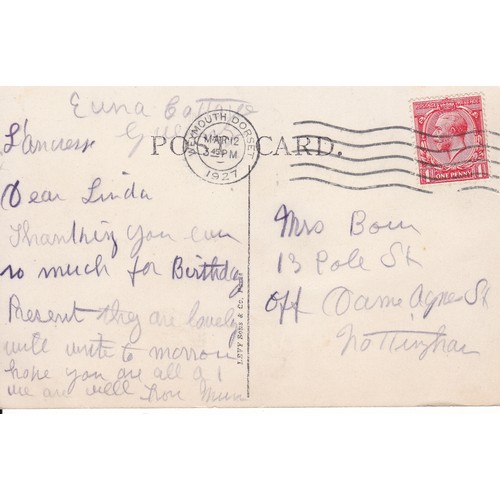 Cottage
L'ancresse
POST CARD.
WEYMOUTH, DORSET
MAR 12
3 PM
1927
POSTAGE REVENUE
ONE PENNY
Dear Linda
Thanking you
so much for Birthday
Present they are lovely
will write to morrow
hope you are all
we are well from Mum
LEVY Sons & Co.
Mrs
13 Pole St
off Dame Agnes St
Nottingham